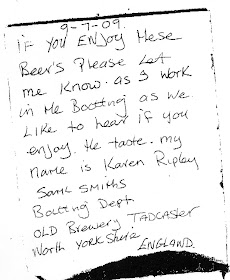 9-7-09.
IF YOU ENJOY these
Beer's Please Let
me know. as I work
in the Bottling as we
Like to hear if you
enjoy. the taste. my
name is Karen Ripley
SAML SMITHS
Bottling Dept
OLD Brewery TADCASTER
North Yorkshire
ENGLAND.